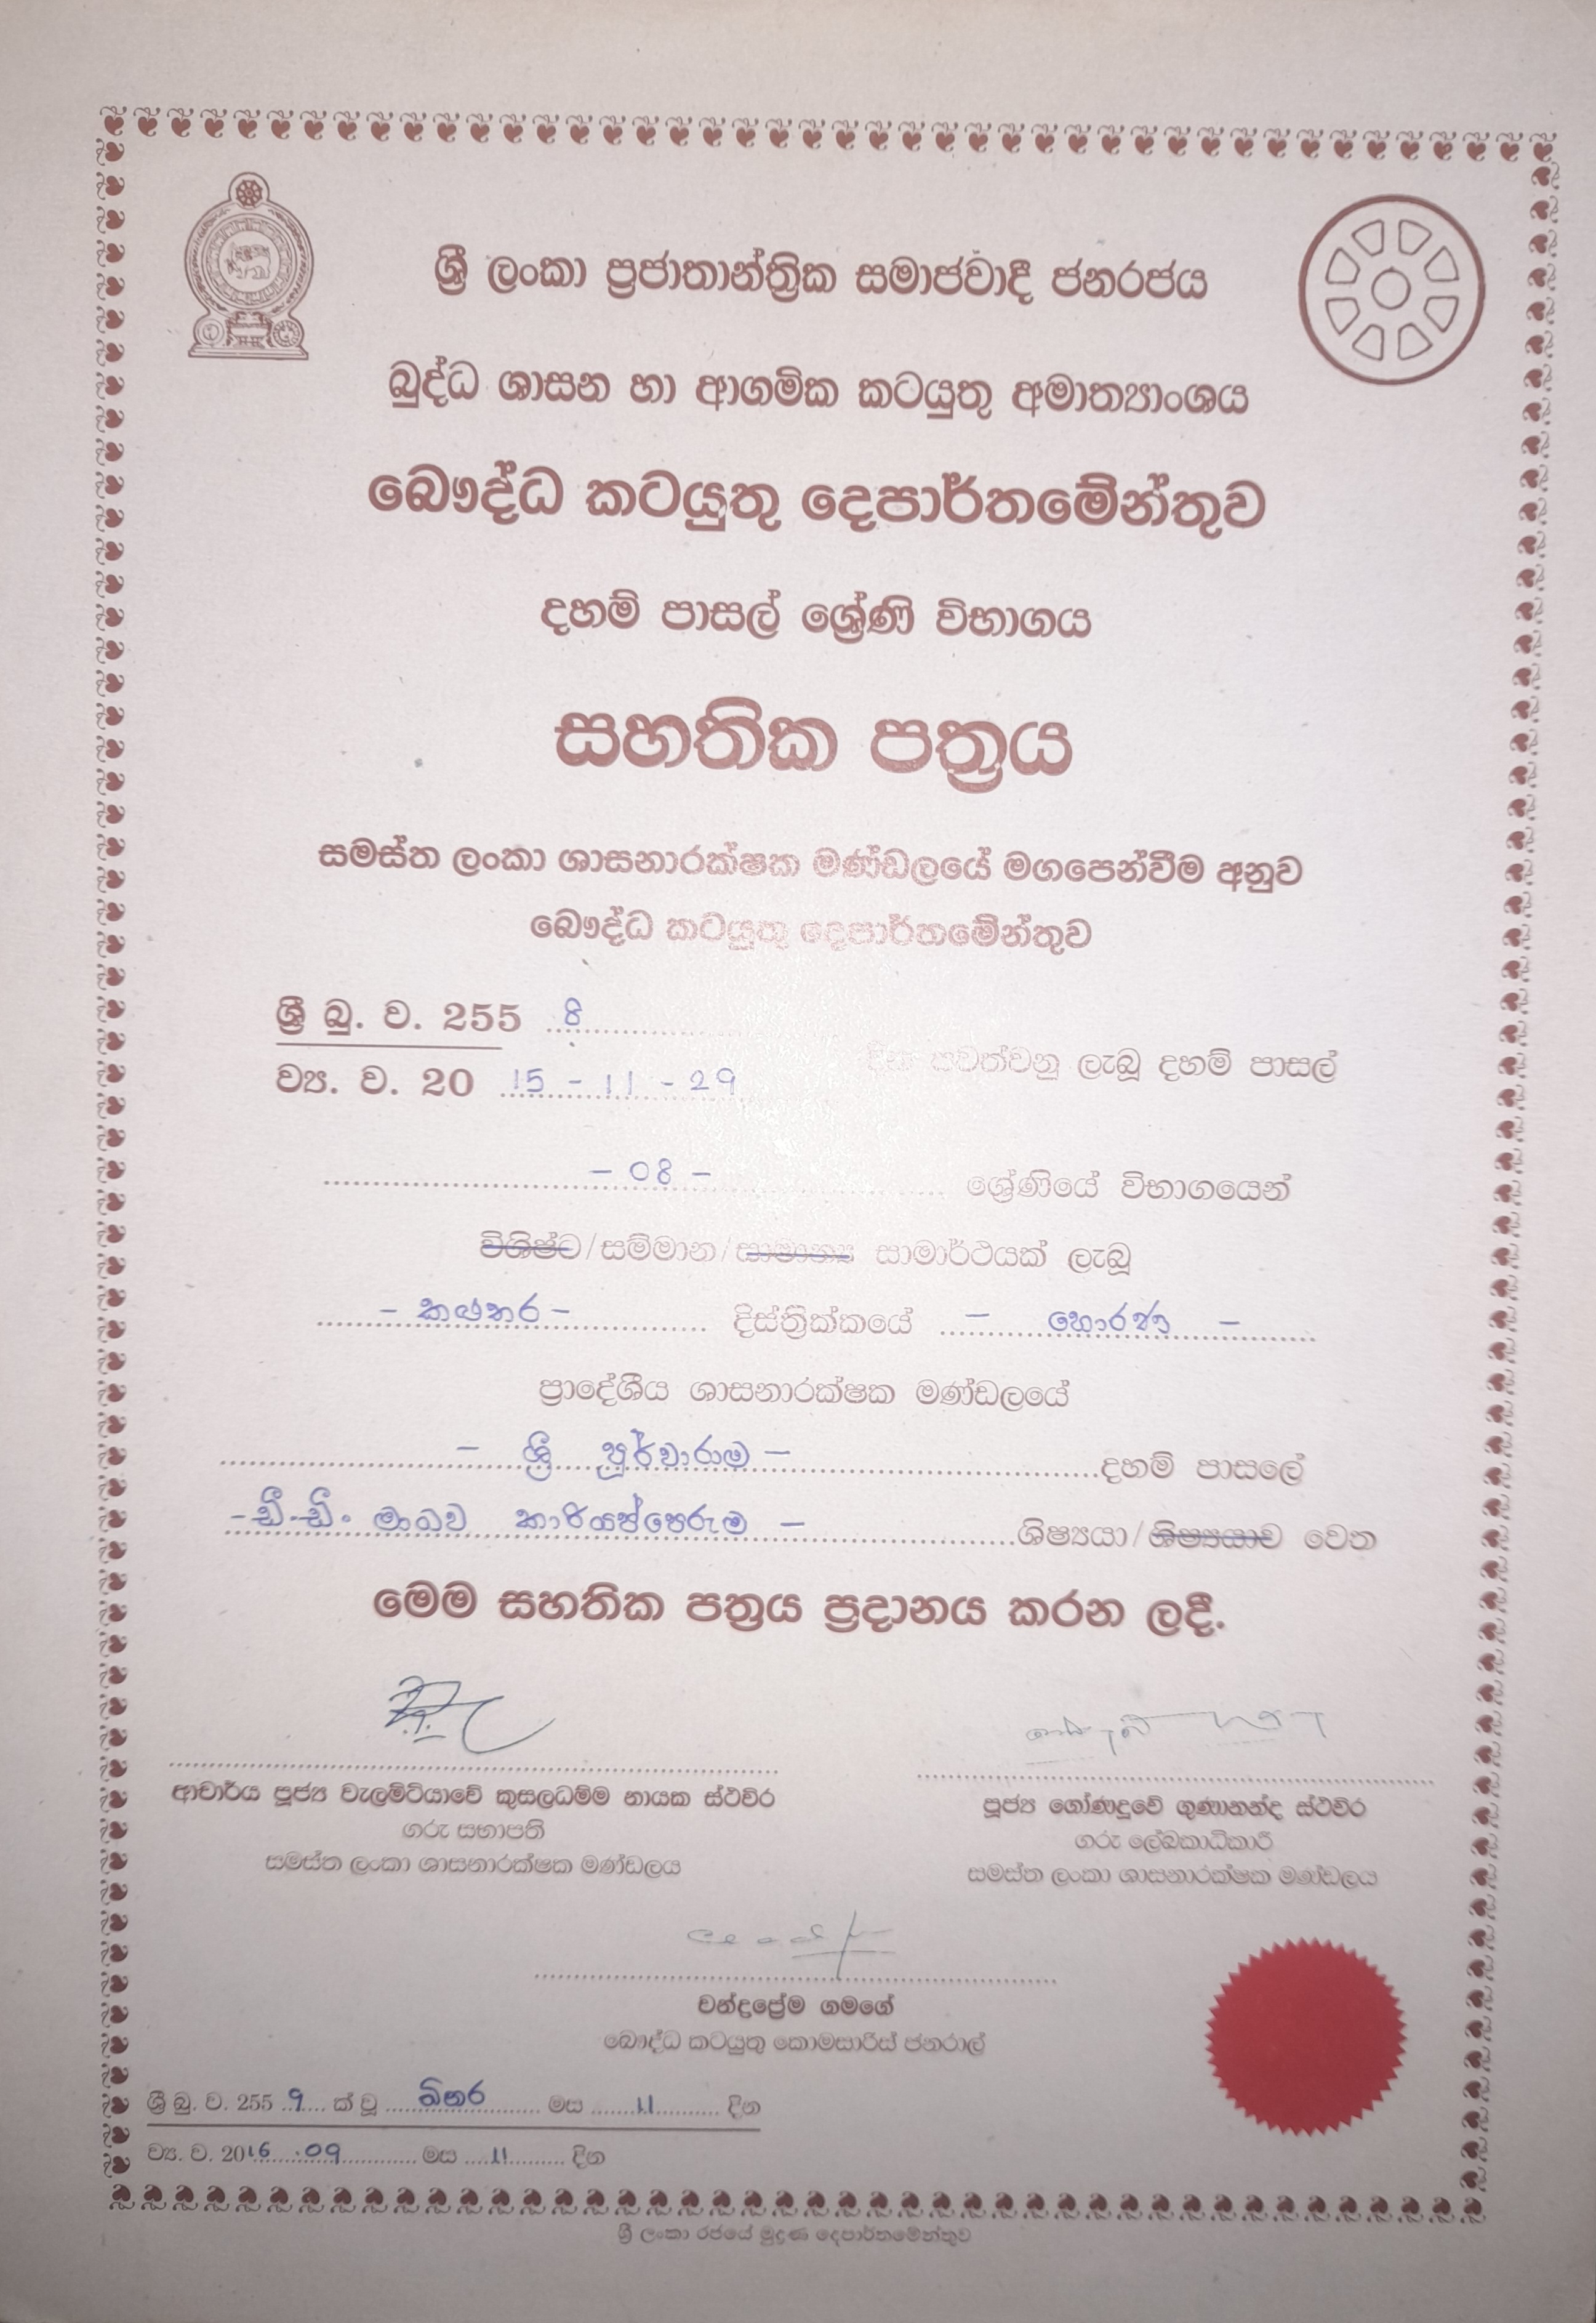 ශ්‍රී ලංකා ප්‍රජාතාන්ත්‍රික සමාජවාදී ජනරජය
බුද්ධ ශාසන හා ආගමික කටයුතු අමාත්‍යාංශය
බෞද්ධ කටයුතු දෙපාර්තමේන්තුව
දහම් පාසල් ශ්‍රේණි විභාගය
සහතික පත්‍රය
සමස්ත ලංකා ශාසනාරක්ෂක මණ්ඩලයේ මගපෙන්වීම අනුව
බෞද්ධ කටයුතු දෙපාර්තමේන්තුව
ශ්‍රී බු. ව. 255 8
ව්‍ය. ව. 20 15 - 11 - 29 දින පවත්වනු ලැබූ දහම් පාසල්
- 08 - ශ්‍රේණියේ විභාගයෙන්
විශිෂ්ට/සම්මාන/සාමාන්‍ය සාමාර්ථයක් ලැබූ
- කළුතර - දිස්ත්‍රික්කයේ - හොරණ -
ප්‍රාදේශීය ශාසනාරක්ෂක මණ්ඩලයේ
- ශ්‍රී පූර්වාරාම - දහම් පාසලේ
- ඩී.ඩී. මාධව කාරියප්පෙරුම - ශිෂ්‍යයා/ශිෂ්‍යයාව වෙත
මෙම සහතික පත්‍රය ප්‍රදානය කරන ලදී.
ආචාර්ය පූජ්‍ය වැලමිටියාවේ කුසලධම්ම නායක ස්ථවිර
ගරු සභාපති
සමස්ත ලංකා ශාසනාරක්ෂක මණ්ඩලය
පූජ්‍ය ගෝණදූවේ ගුණානන්ද ස්ථවිර
ගරු ලේඛකාධිකාරී
සමස්ත ලංකා ශාසනාරක්ෂක මණ්ඩලය
චන්ද්‍රප්‍රේම ගමගේ
බෞද්ධ කටයුතු කොමසාරිස් ජනරාල්
ශ්‍රී බු. ව. 255 9 ක් වූ බිනර මස 11 දින
ව්‍ය. ව. 2016 .09 මස 11 දින
ශ්‍රී ලංකා රජයේ මුද්‍රණ දෙපාර්තමේන්තුව